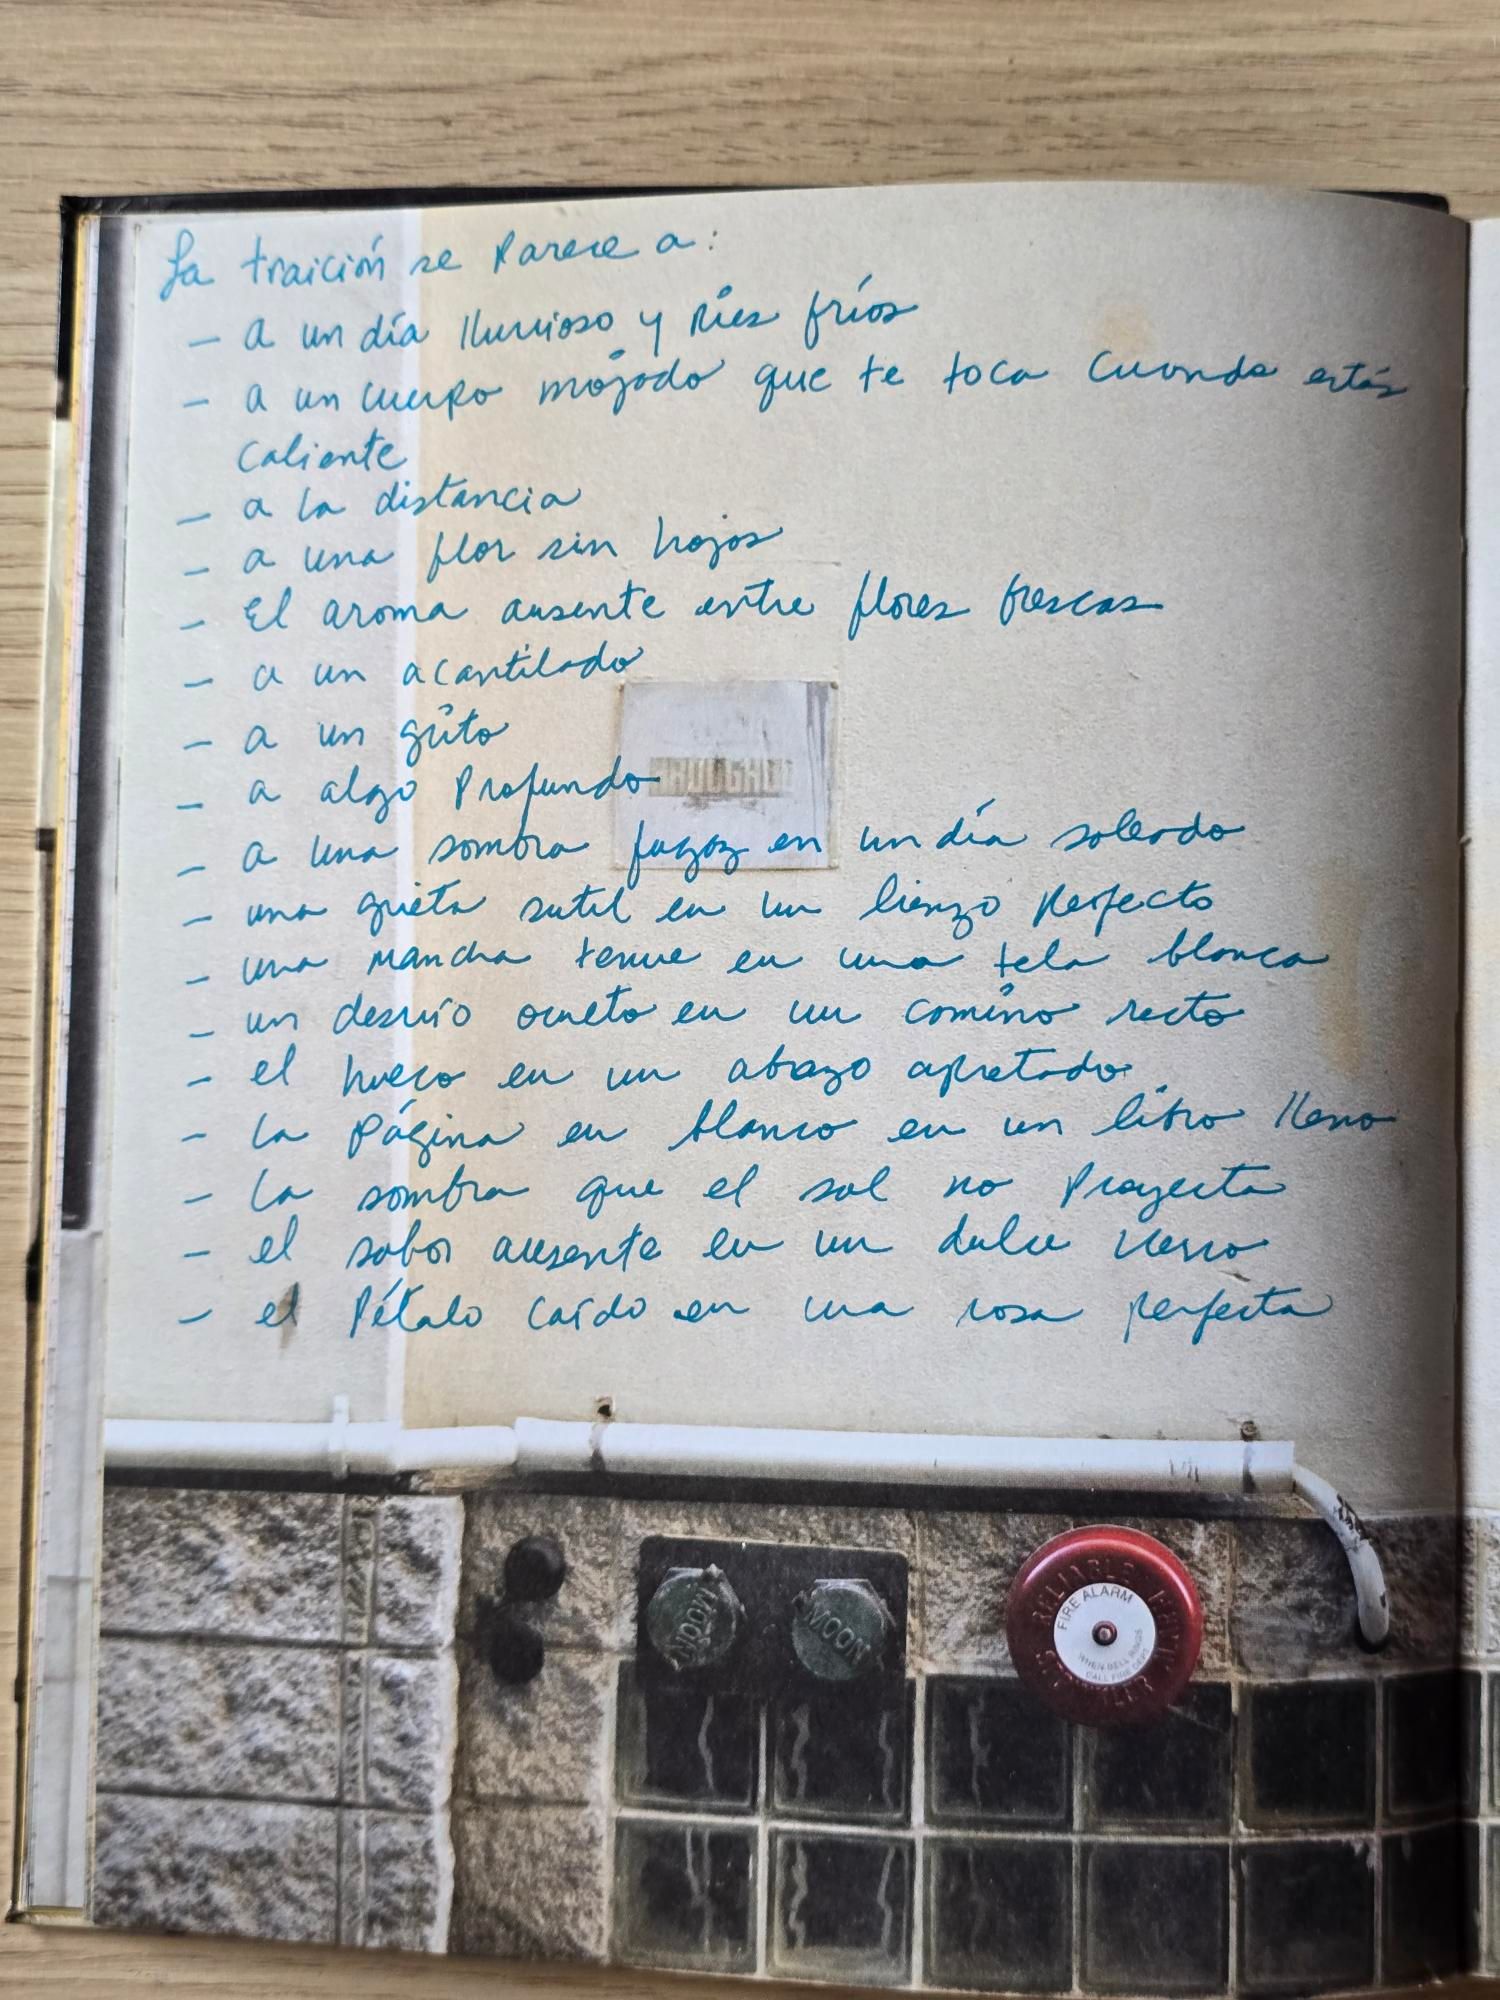 La traición se parece a:
– a un día lluvioso y pies fríos
– a un cuerpo mojado que te toca cuando estás
caliente
– a la distancia
– a una flor sin hojas
– El aroma ausente entre flores frescas
– a un acantilado
– a un grito
– a algo profundo
– a una sombra fugaz en un día soleado
– una grieta sutil en un lienzo perfecto
– una mancha tenue en una tela blanca
– un desvío oculto en un camino recto
– el hueco en un abrazo apretado
– la página en blanco en un libro lleno
– la sombra que el sol no proyecta
– el sabor ausente en un dulce
– el pétalo caído en una rosa perfecta
MOON
MOON
RELIABLE FIRE
SPRINKLER
FIRE ALARM
WHEN BELL RINGS
CALL FIRE DEPT